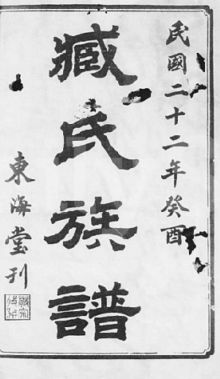 民國二十二年癸酉
臧氏族譜
東海堂刊